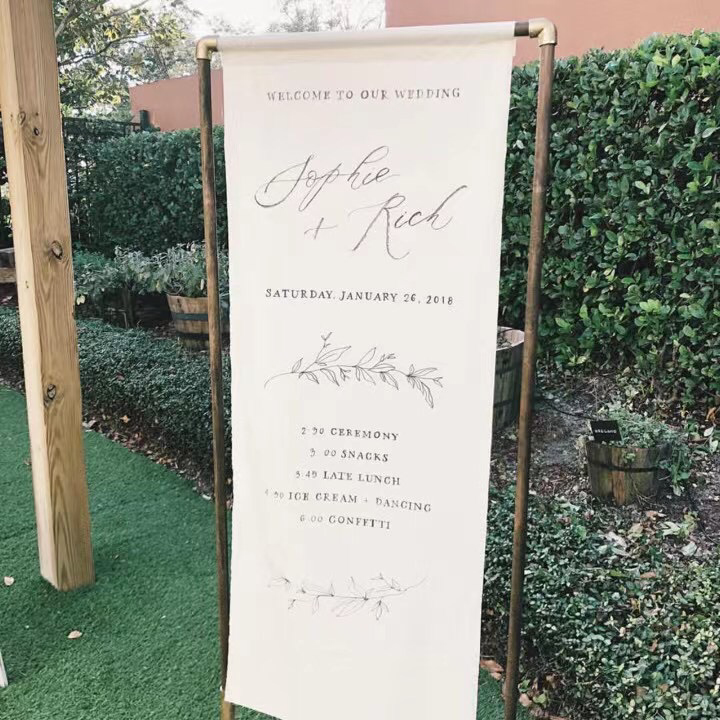 WELCOME TO OUR WEDDING
Sophie
+ Rich
SATURDAY, JANUARY 26, 2018
2:30 CEREMONY
3:00 SNACKS
3:45 LATE LUNCH
4:30 ICE CREAM + DANCING
6:00 CONFETTI
OREGANO